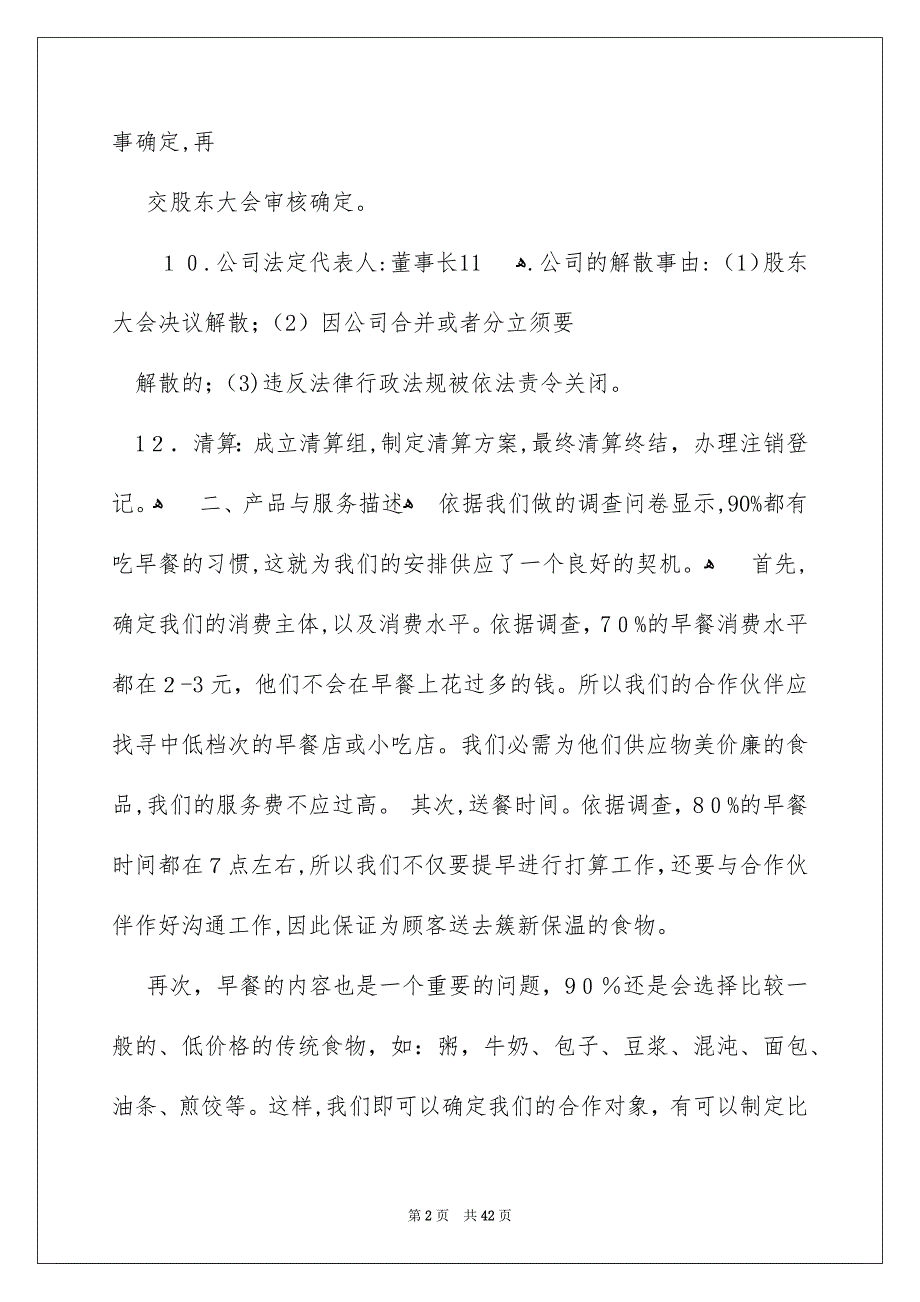 事确定,再
交股东大会审核确定。
１０.公司法定代表人:董事长11 ﻫ.公司的解散事由:（1）股东
大会决议解散；（2）因公司合并或者分立须要
解散的；（3)违反法律行政法规被依法责令关闭。
１２．清算：成立清算组,制定清算方案,最终清算终结，办理注销登
记。ﻫ 二、产品与服务描述ﻫ 依据我们做的调查问卷显示,90%都有
吃早餐的习惯,这就为我们的安排供应了一个良好的契机。ﻫ 首先,
确定我们的消费主体,以及消费水平。依据调查，７０%的早餐消费水平
都在２-3元，他们不会在早餐上花过多的钱。所以我们的合作伙伴应
找寻中低档次的早餐店或小吃店。我们必需为他们供应物美价廉的食
品,我们的服务费不应过高。 其次,送餐时间。依据调查，８０%的早餐
时间都在７点左右,所以我们不仅要提早进行打算工作，还要与合作伙
伴作好沟通工作,因此保证为顾客送去簇新保温的食物。
再次，早餐的内容也是一个重要的问题，９０％还是会选择比较一
般的、低价格的传统食物，如：粥，牛奶、包子、豆浆、混沌、面包、
油条、煎饺等。这样,我们即可以确定我们的合作对象，有可以制定比
第 2 页 共 42 页